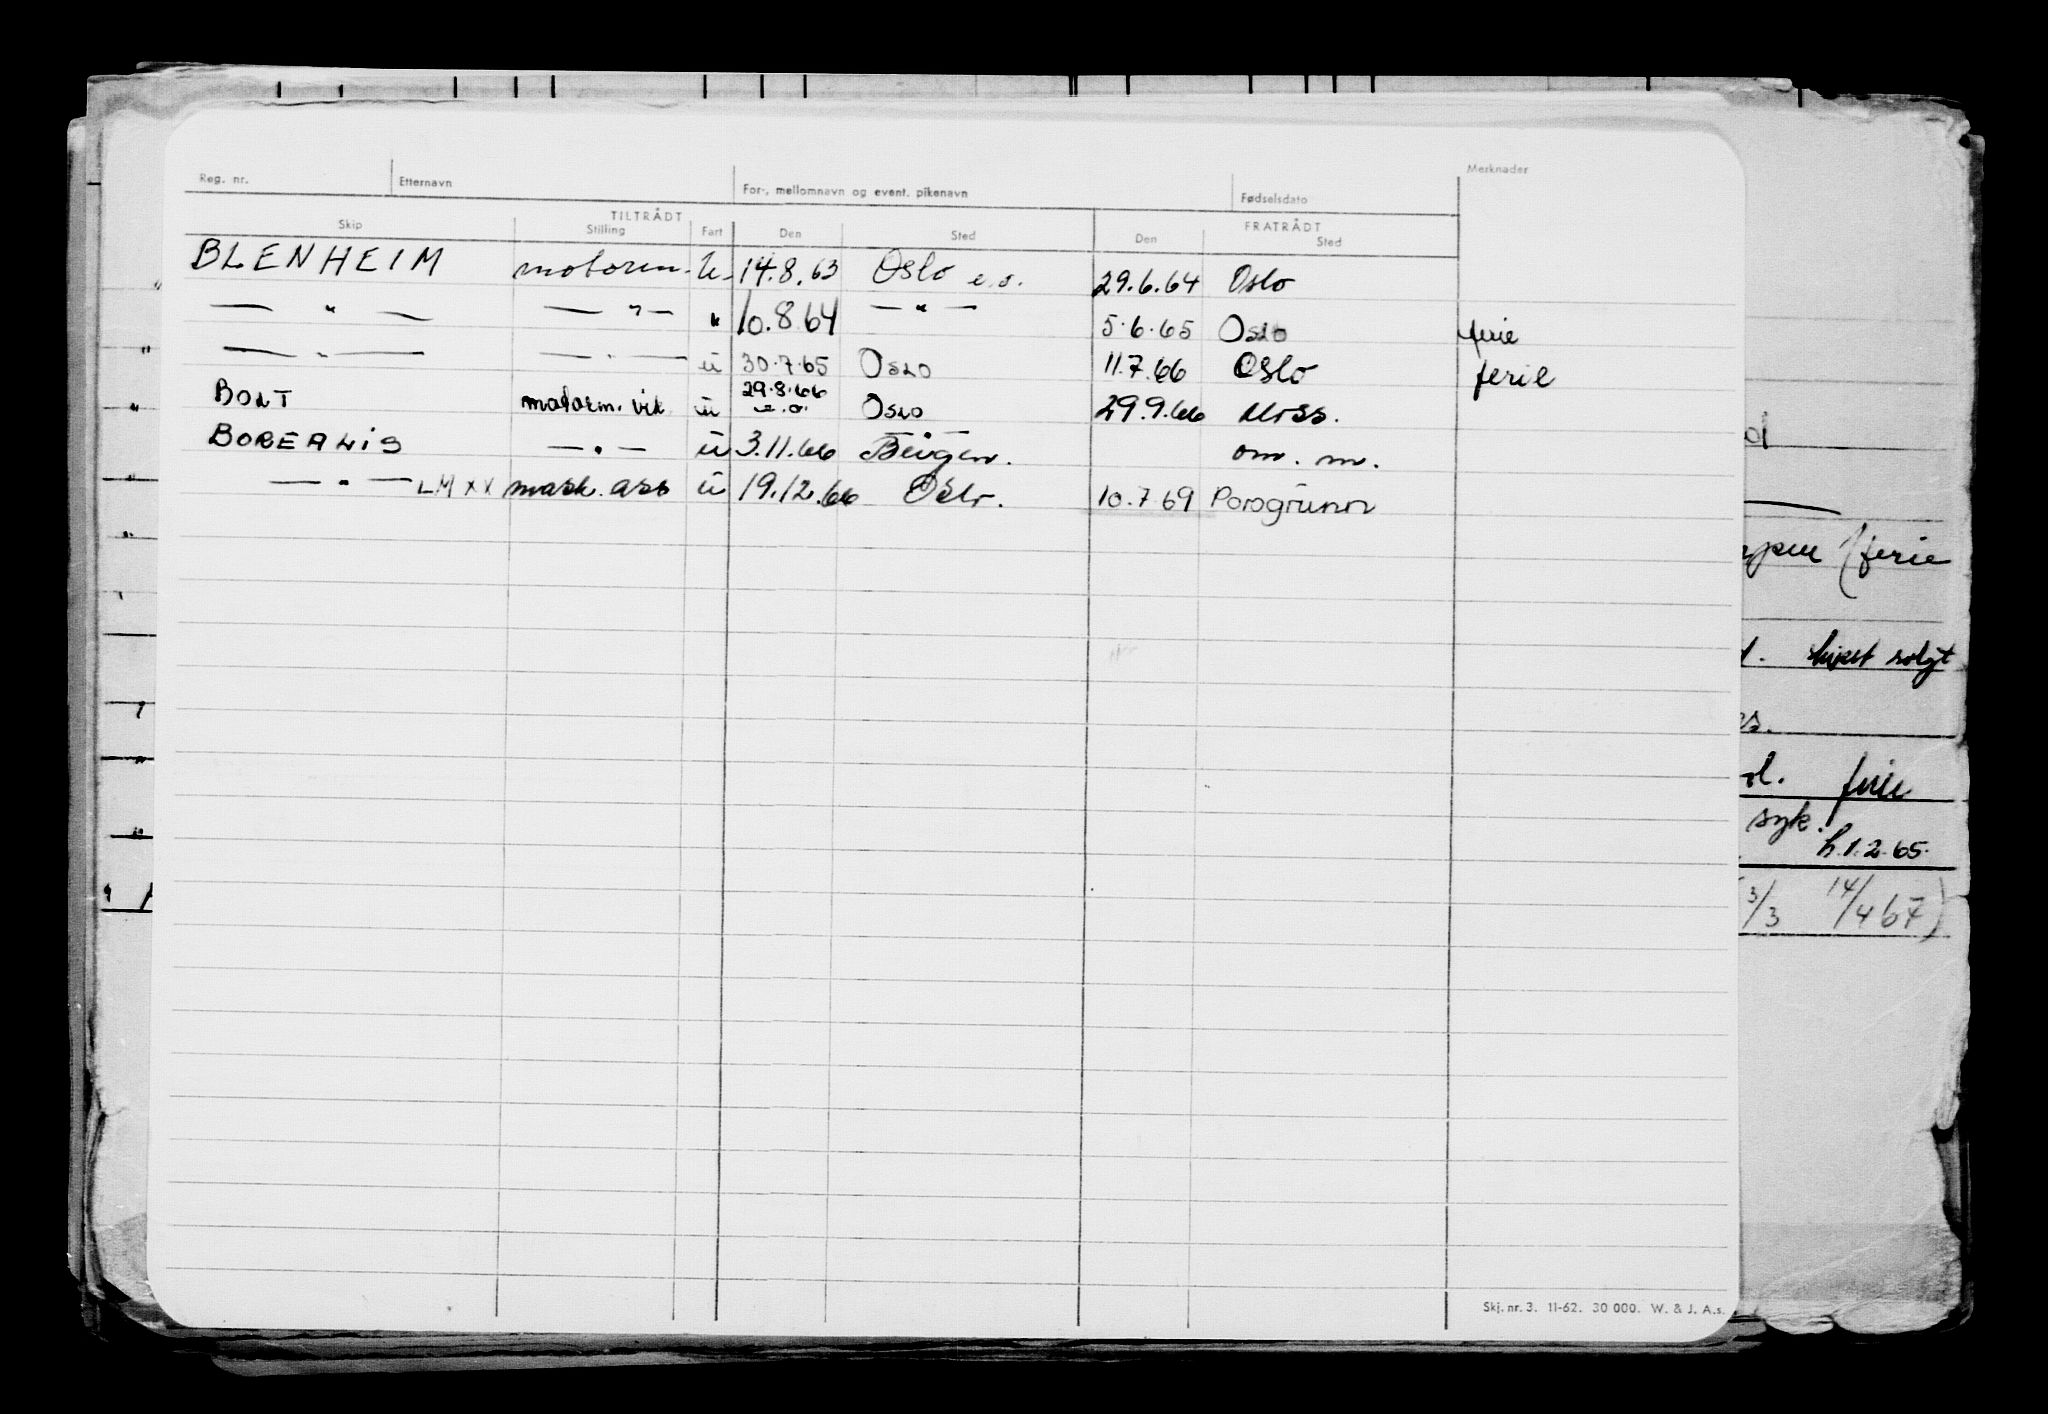 Reg. nr. Etternavn For-, mellomnavn og event. pikenavn Fødselsdato Merknader
TILTRÅDT FRATRÅDT
Skip Stilling Fart Den Sted Den Sted
BLENHEIM motorm. U. 14.8.63 Oslo e.o. 29.6.64 Oslo
— " — — " — " 10.8.64 — " — 5.6.65 Oslo ferie
— " — — " — u 30.7.65 Oslo 11.7.66 Oslo ferie
BOLT motorm. vik u 29.8.66 e.o. Oslo 29.9.66 Moss.
BOREALIS — " — u 3.11.66 Bergen. om. m.
— " — LMXX mask. ass u 19.12.66 Oslo. 10.7.69 Porsgrunn
ferie
solgt
es.
ol. ferie
syk.
h.1.2.65.
3/3 14/4 67)
Skj. nr. 3. 11-62. 30 000. W. & J. A.s.